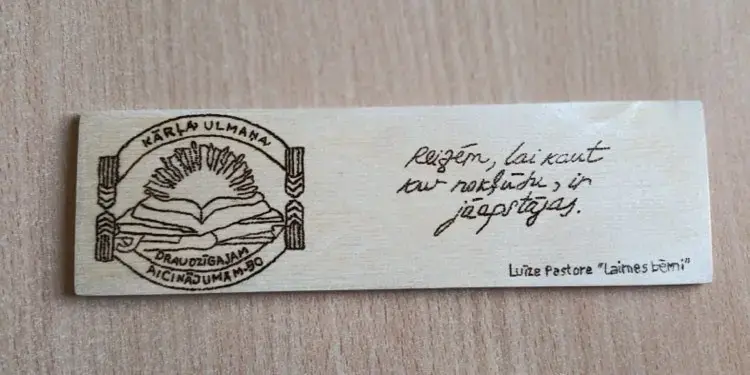 KĀRĻA ULMAŅA
DRAUDZĪGAJAM
AICINĀJUMAM-90
Reizēm, lai kaut
kur nokļūtu, ir
jāapstājas.
Luīze Pastore "Laimes bērni"